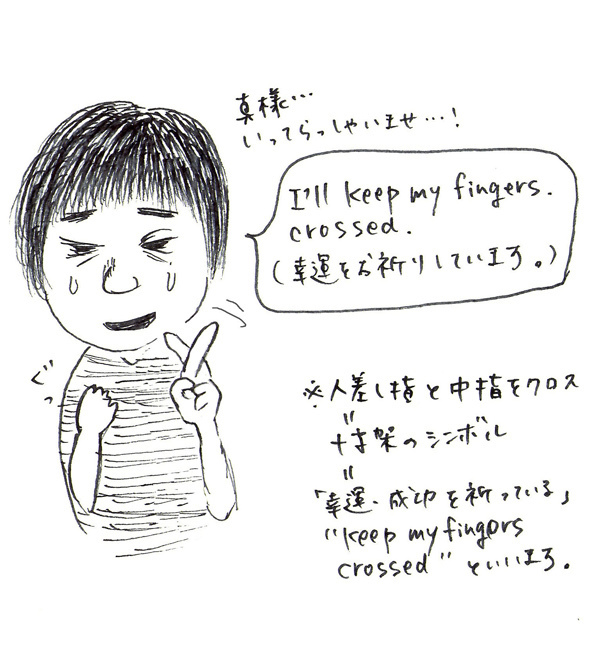 真様…
いってらっしゃいませ…!
I'll keep my fingers.
crossed.
(幸運をお祈りしています。)
ぐっ
※人差し指と中指をクロス
〃
十字架のシンボル
〃
「幸運・成功を祈っている」
"keep my fingers
crossed" といいます。